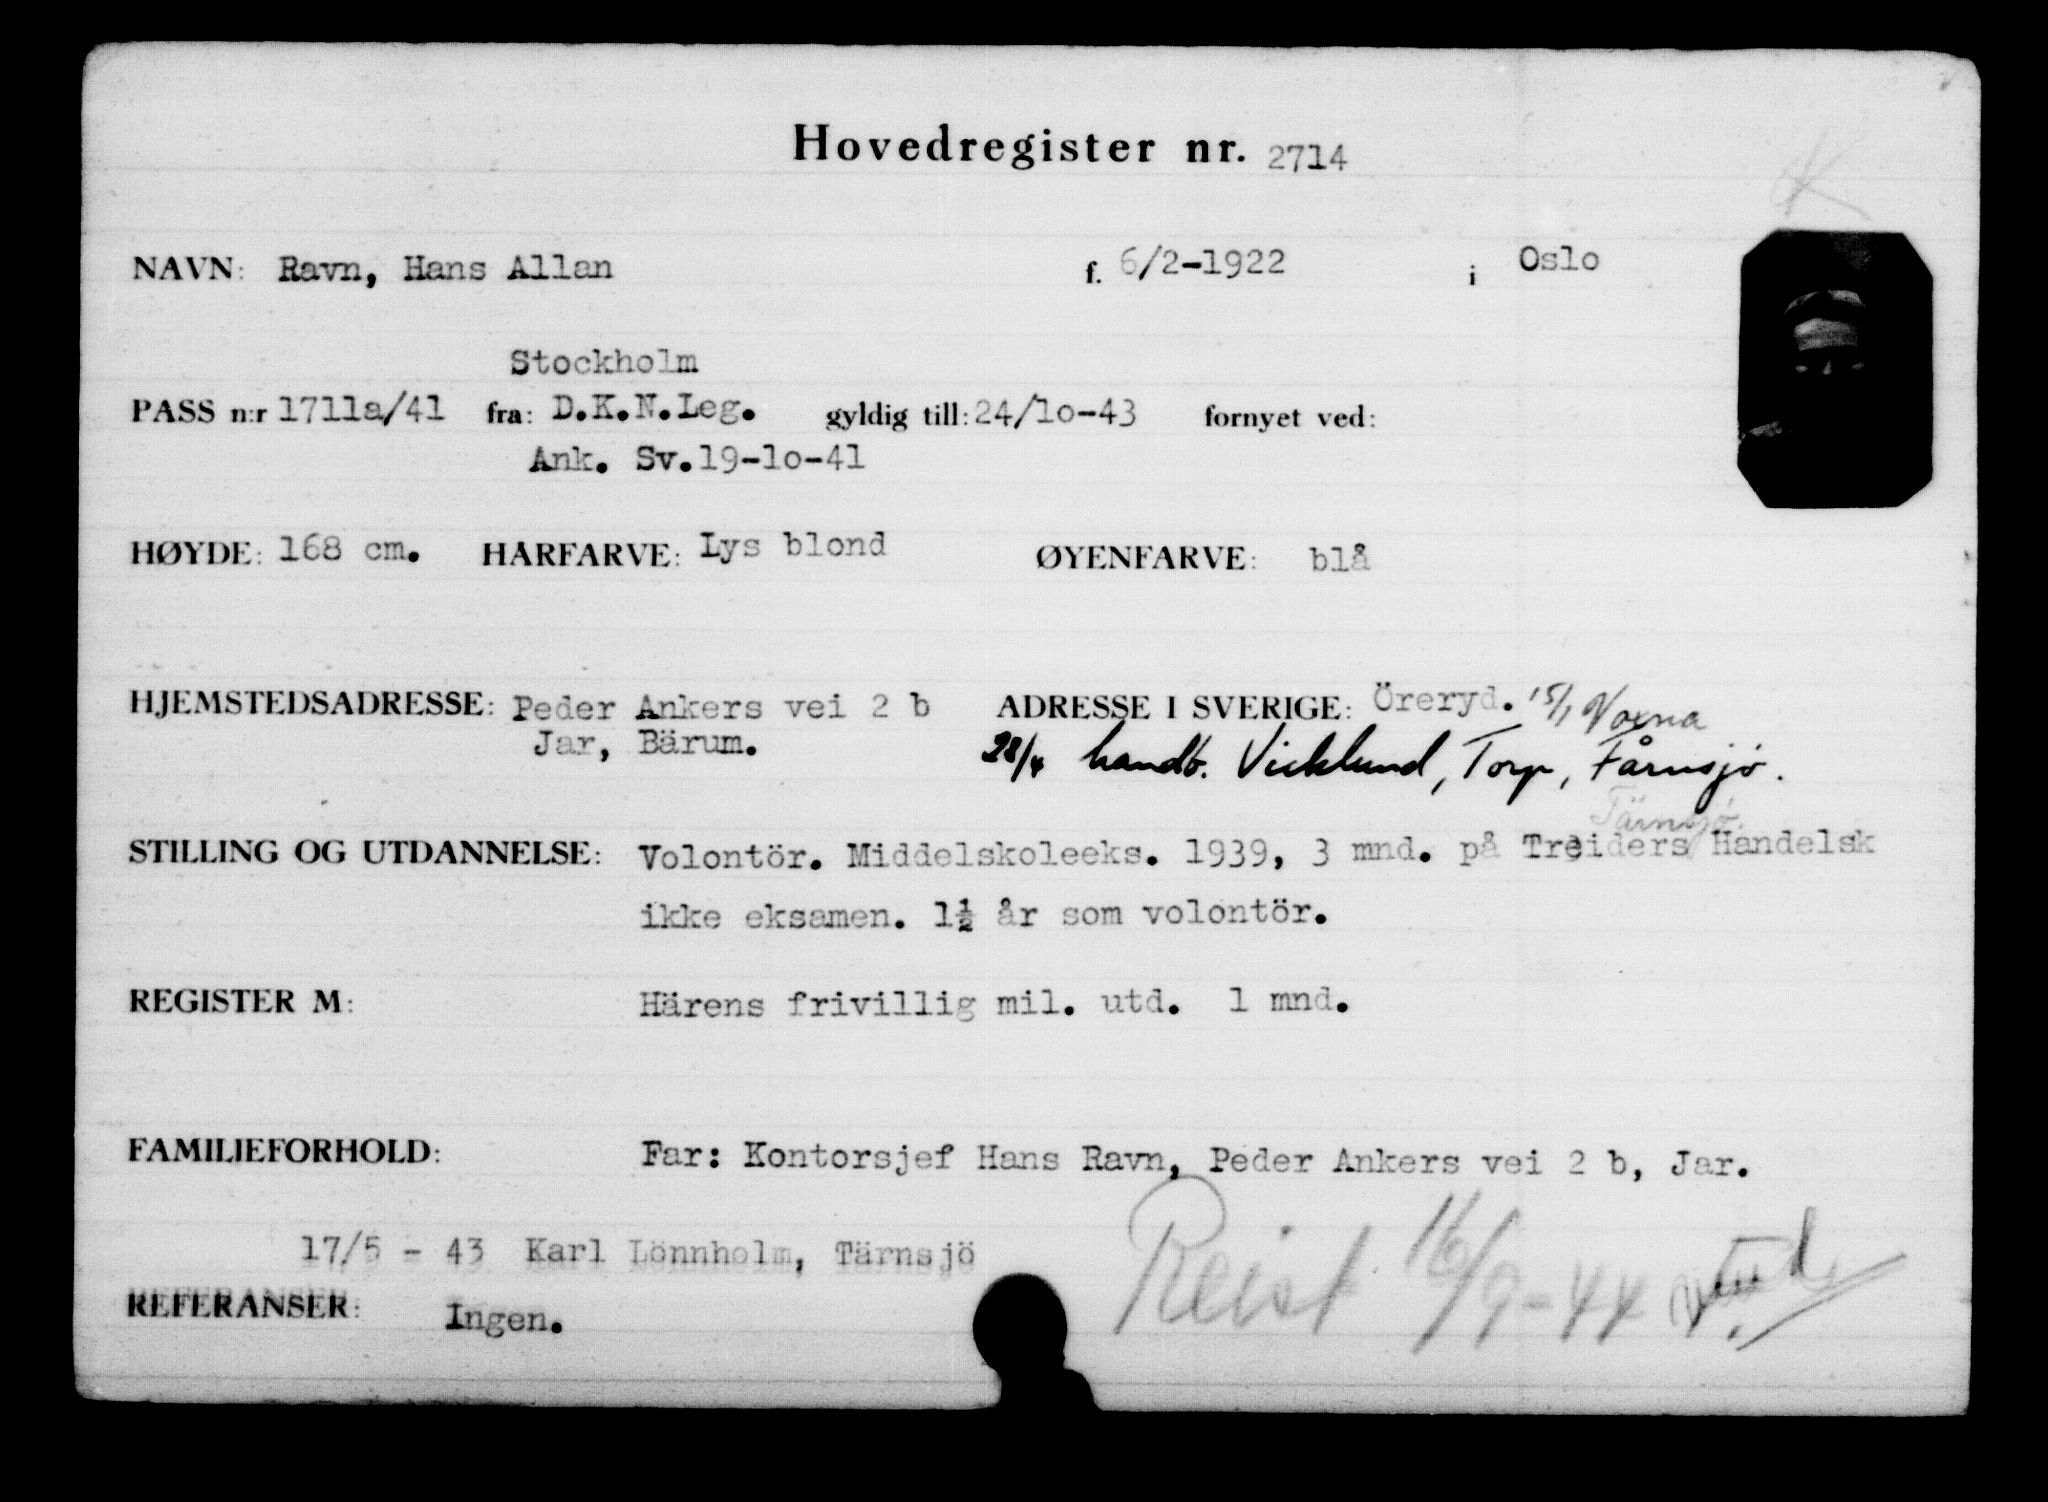 Hovedregister nr. 2714
NAVN: Ravn, Hans Allan f. 6/2-1922 i Oslo
Stockholm
PASS n:r 1711a/41 fra: D.K.N.Leg. gyldig till: 24/10-43 fornyet ved:
Ank. Sv.19-10-41
HØYDE: 168 cm. HARFARVE: Lys blond ØYENFARVE: blå
HJEMSTEDSADRESSE: Peder Ankers vei 2 b ADRESSE I SVERIGE: Öreryd. 15/1 Voxna
Jar, Bärum. 28/4 handb. Vicklund, Torp, Fårnsjö.
Tärnsjö.
STILLING OG UTDANNELSE: Volontör. Middelskoleeks. 1939, 3 mnd. på Treiders Handelsk
ikke eksamen. 1½ år som volontör.
REGISTER M: Härens frivillig mil. utd. 1 mnd.
FAMILIEFORHOLD: Far: Kontorsjef Hans Ravn, Peder Ankers vei 2 b, Jar.
17/5 - 43 Karl Lönnholm, Tärnsjö
Reist 16/9-44
REFERANSER: Ingen.